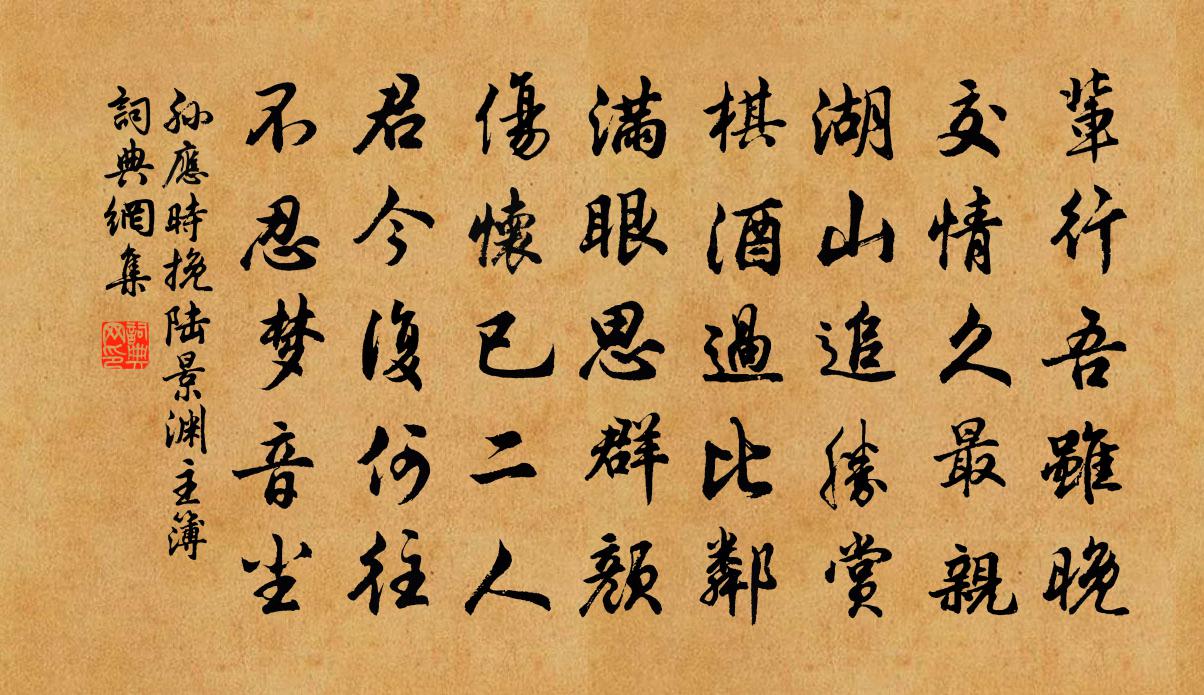 輩行吾雖晚
交情久最親
湖山追勝賞
棋酒過比鄰
滿眼思群顏
傷懷已二人
君今復何往
不忍梦音尘
孙應時挽陆景渊主簿
詞典網集
詞典网印